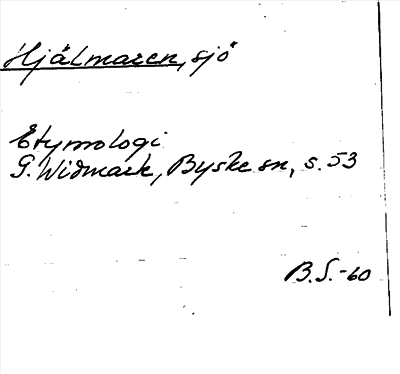 Hjälmaren, sjö
Etymologi
G. Widmark, Byske sn, s. 53
B.S.-60